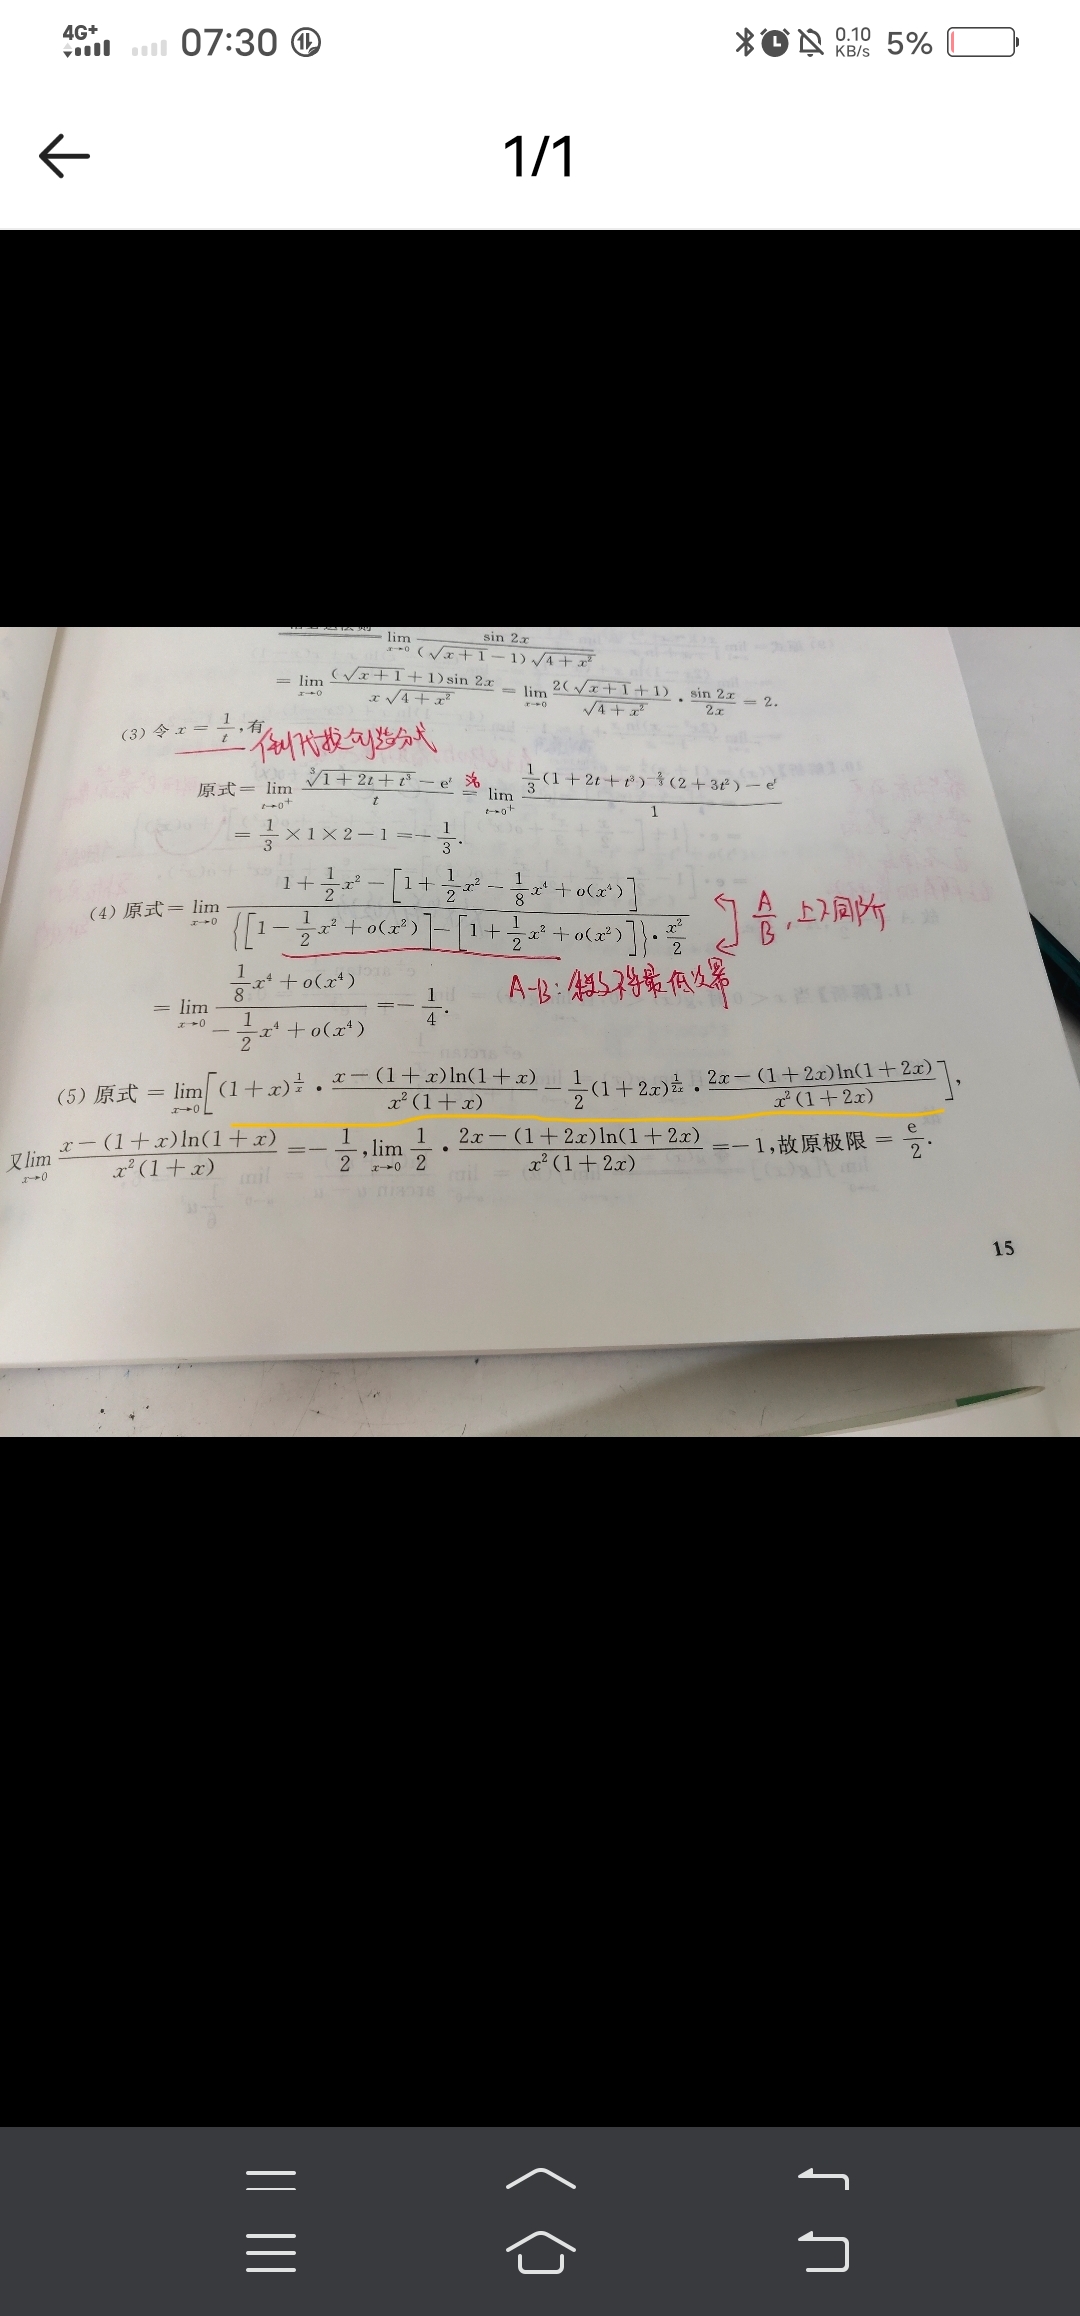 4G+ 07:30 0.10 KB/s 5%
1/1
lim_{x→0} sin 2x / ((√(x+1) − 1)√(4+x²))
= lim_{x→0} (√(x+1) + 1)sin 2x / (x√(4+x²)) = lim_{x→0} 2(√(x+1) + 1) / √(4+x²) · sin 2x / 2x = 2.
(3) 令 x = 1/t, 有
倒代换创造分式
原式 = lim_{t→0⁺} (∛(1+2t+t³) − eᵗ) / t 洛= lim_{t→0⁺} (1/3 (1+2t+t³)^{−2/3} (2+3t²) − eᵗ) / 1
= 1/3 × 1 × 2 − 1 = −1/3.
(4) 原式 = lim_{x→0} (1 + 1/2 x² − [1 + 1/2 x² − 1/8 x⁴ + o(x⁴)]) / ({[1 − 1/2 x² + o(x²)] − [1 + 1/2 x² + o(x²)]} · x²/2)
A/B, 上下同阶
A-B: 最低次幂
= lim_{x→0} (1/8 x⁴ + o(x⁴)) / (−1/2 x⁴ + o(x⁴)) = −1/4.
(5) 原式 = lim_{x→0} [(1+x)^{1/x} · (x − (1+x)ln(1+x)) / (x²(1+x)) − 1/2 (1+2x)^{1/2x} · (2x − (1+2x)ln(1+2x)) / (x²(1+2x))],
又 lim_{x→0} (x − (1+x)ln(1+x)) / (x²(1+x)) = −1/2, lim_{x→0} 1/2 · (2x − (1+2x)ln(1+2x)) / (x²(1+2x)) = −1, 故原极限 = e/2.
15